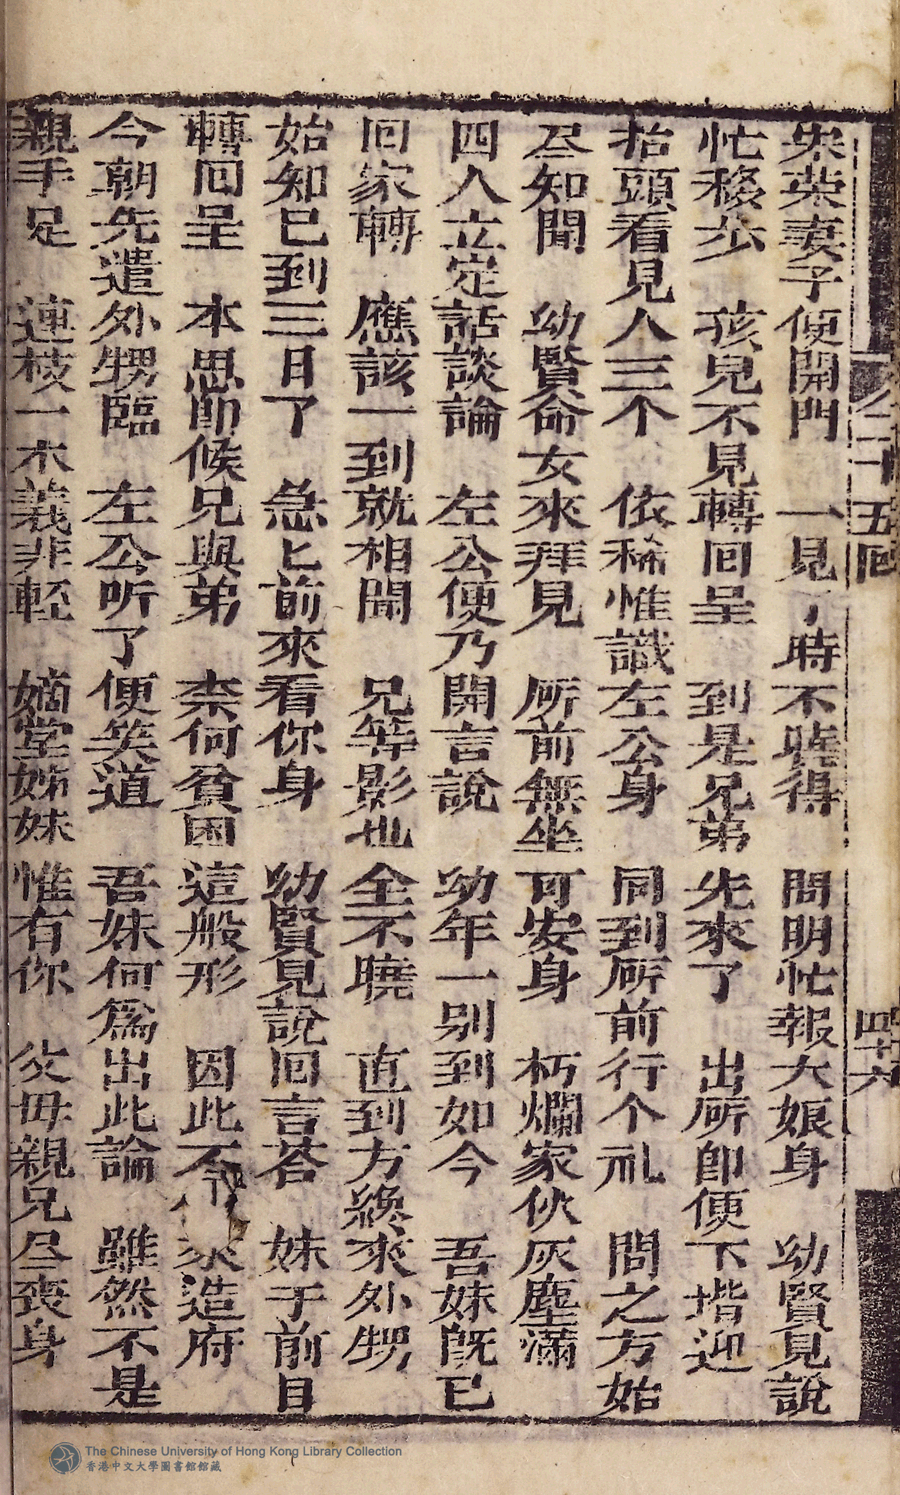 宋荣妻子便開門　一見了時不曉得　問明忙報大娘身　幼賢見說
忙移步　孩兒不見轉囬呈　到是兄弟先來了　出㕔即便下堦迎
抬頭看見人三个　依稀惟識左公身　同到㕔前行个礼　問之方始
尽知聞　幼賢命女來拜見　㕔前無坐可安身　朽爛家伙灰塵滿
四人立定話談論　左公便乃開言說　幼年一别到如今　吾妹旣已
囬家轉　應該一到就相聞　兄等影也全不曉　直到方纔來外甥
始知已到三日了　急匕前來看你身　幼賢見說囬言荅　妹于前日
轉囬呈　本思即候兄與弟　柰何貧困這般形　因此不來造府
今朝先遣外甥臨　左公听了便笑道　吾妹何爲出此論　雖然不是
親手足　連枝一木義非輕　嫡堂姊妹惟有你　父母親兄尽喪身
二十五囬
四十六
The Chinese University of Hong Kong Library Collection
香港中文大學圖書館館藏